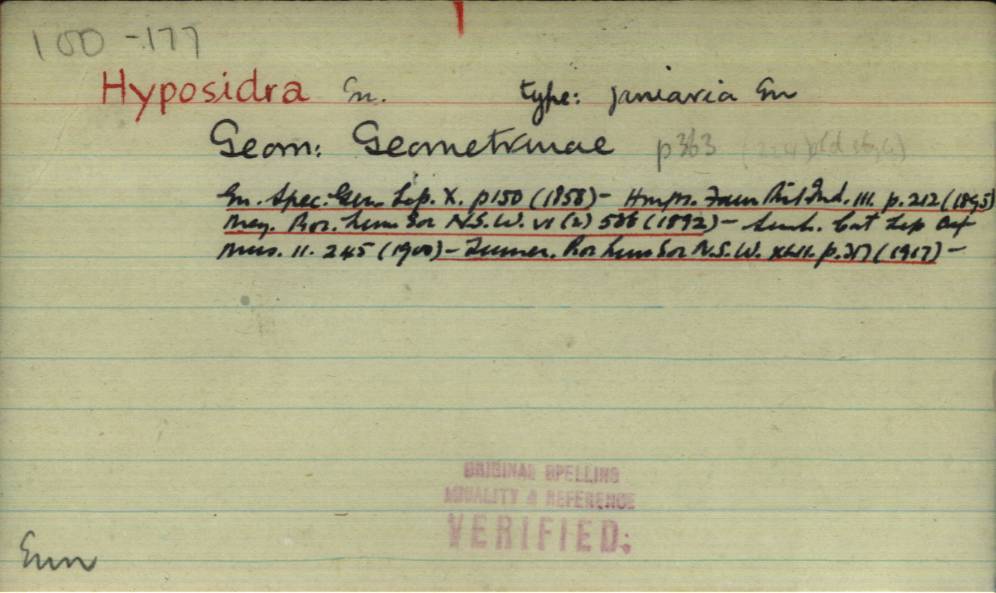 150 - 177
Hyposidra Gn. type: janiaria Gn
Geom: Geometrinae p 363
Gn. Spec. Gen. Lep. X. p 150 (1858) - Hmps. Faun Brit Ind. III. p. 212 (1895)
Mey. Proc. Linn Soc N.S.W. VI (2) 586 (1892) - Swinh. Cat Lep Oxf
Mus. II. 245 (1900) - Turner. Proc Linn Soc N.S.W. XLII. p. 317 (1917) -
ORIGINAL SPELLING
& REFERENCE
VERIFIED.